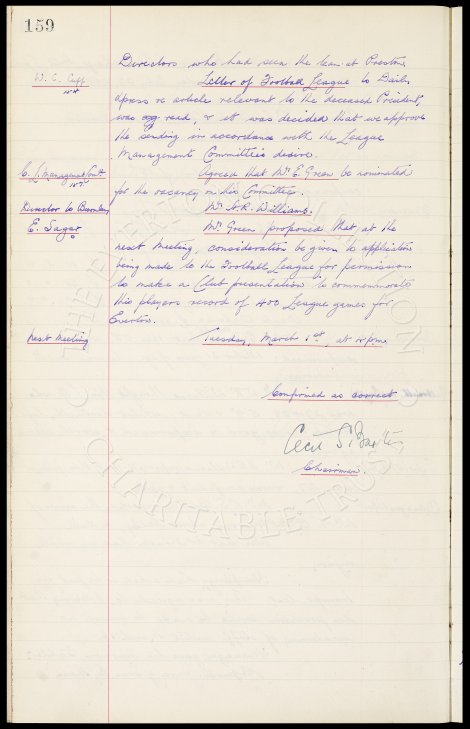 159
Directors who had seen the team at Preston.
W. C. Cuff
Letter of Football League to Daily
Xpress re article relevant to the deceased President,
was read, & it was decided that we approve
the sending in accordance with the League
Management Committee's desire.
C. L. Management Comtt
Agreed that Mr E. Green be nominated
for the vacancy on this Committee.
Director to Burnley
Mr. H. R. Williams.
E. Sagar
Mr. Green proposed that at the
next meeting, consideration be given to application
being made to the Football League for permission
to make a Club presentation to commemorate
this players record of 400 League games for
Everton.
Next Meeting
Tuesday, March 1st, at
Confirmed as correct
Cecil S. Baxter
Chairman.
THE EVERTON
CHARITABLE TRUST